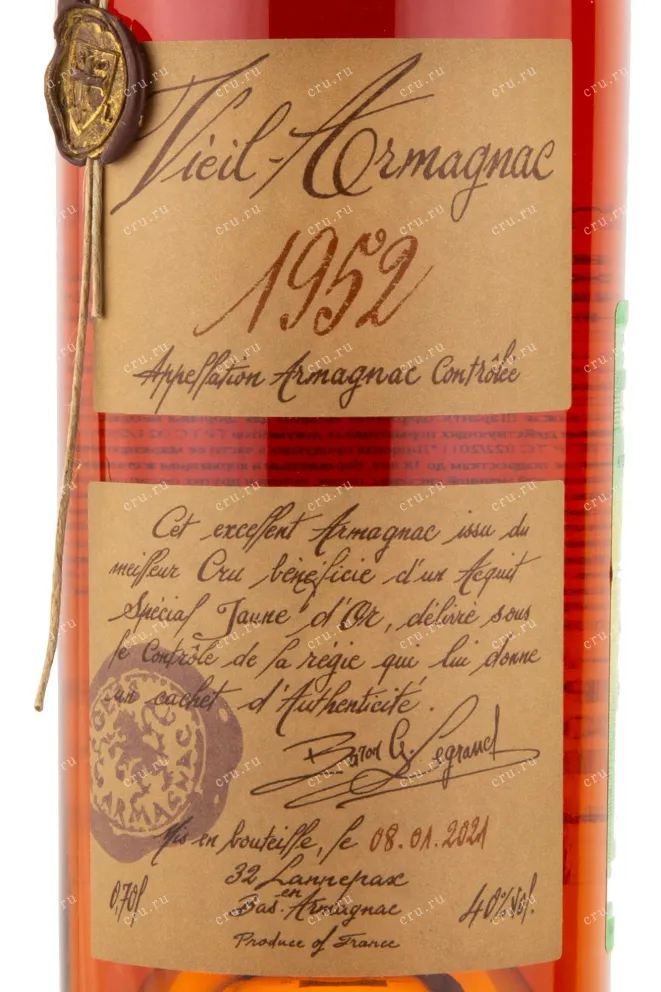 Vieil-Armagnac
1952
Appellation Armagnac Contrôlée
Cet excellent Armagnac issu du
meilleur Cru bénéficie d'un Acquit
Spécial Jaune d'Or, délivré sous
le Contrôle de la régie qui lui donne
un cachet d'Authenticité.
Baron G. Legrand
ARMAGNAC
Mis en bouteille, le 08.01.2021
32 Lannepax
en
Bas-Armagnac
0,70l
40%Vol.
Produce of France
cru.ru